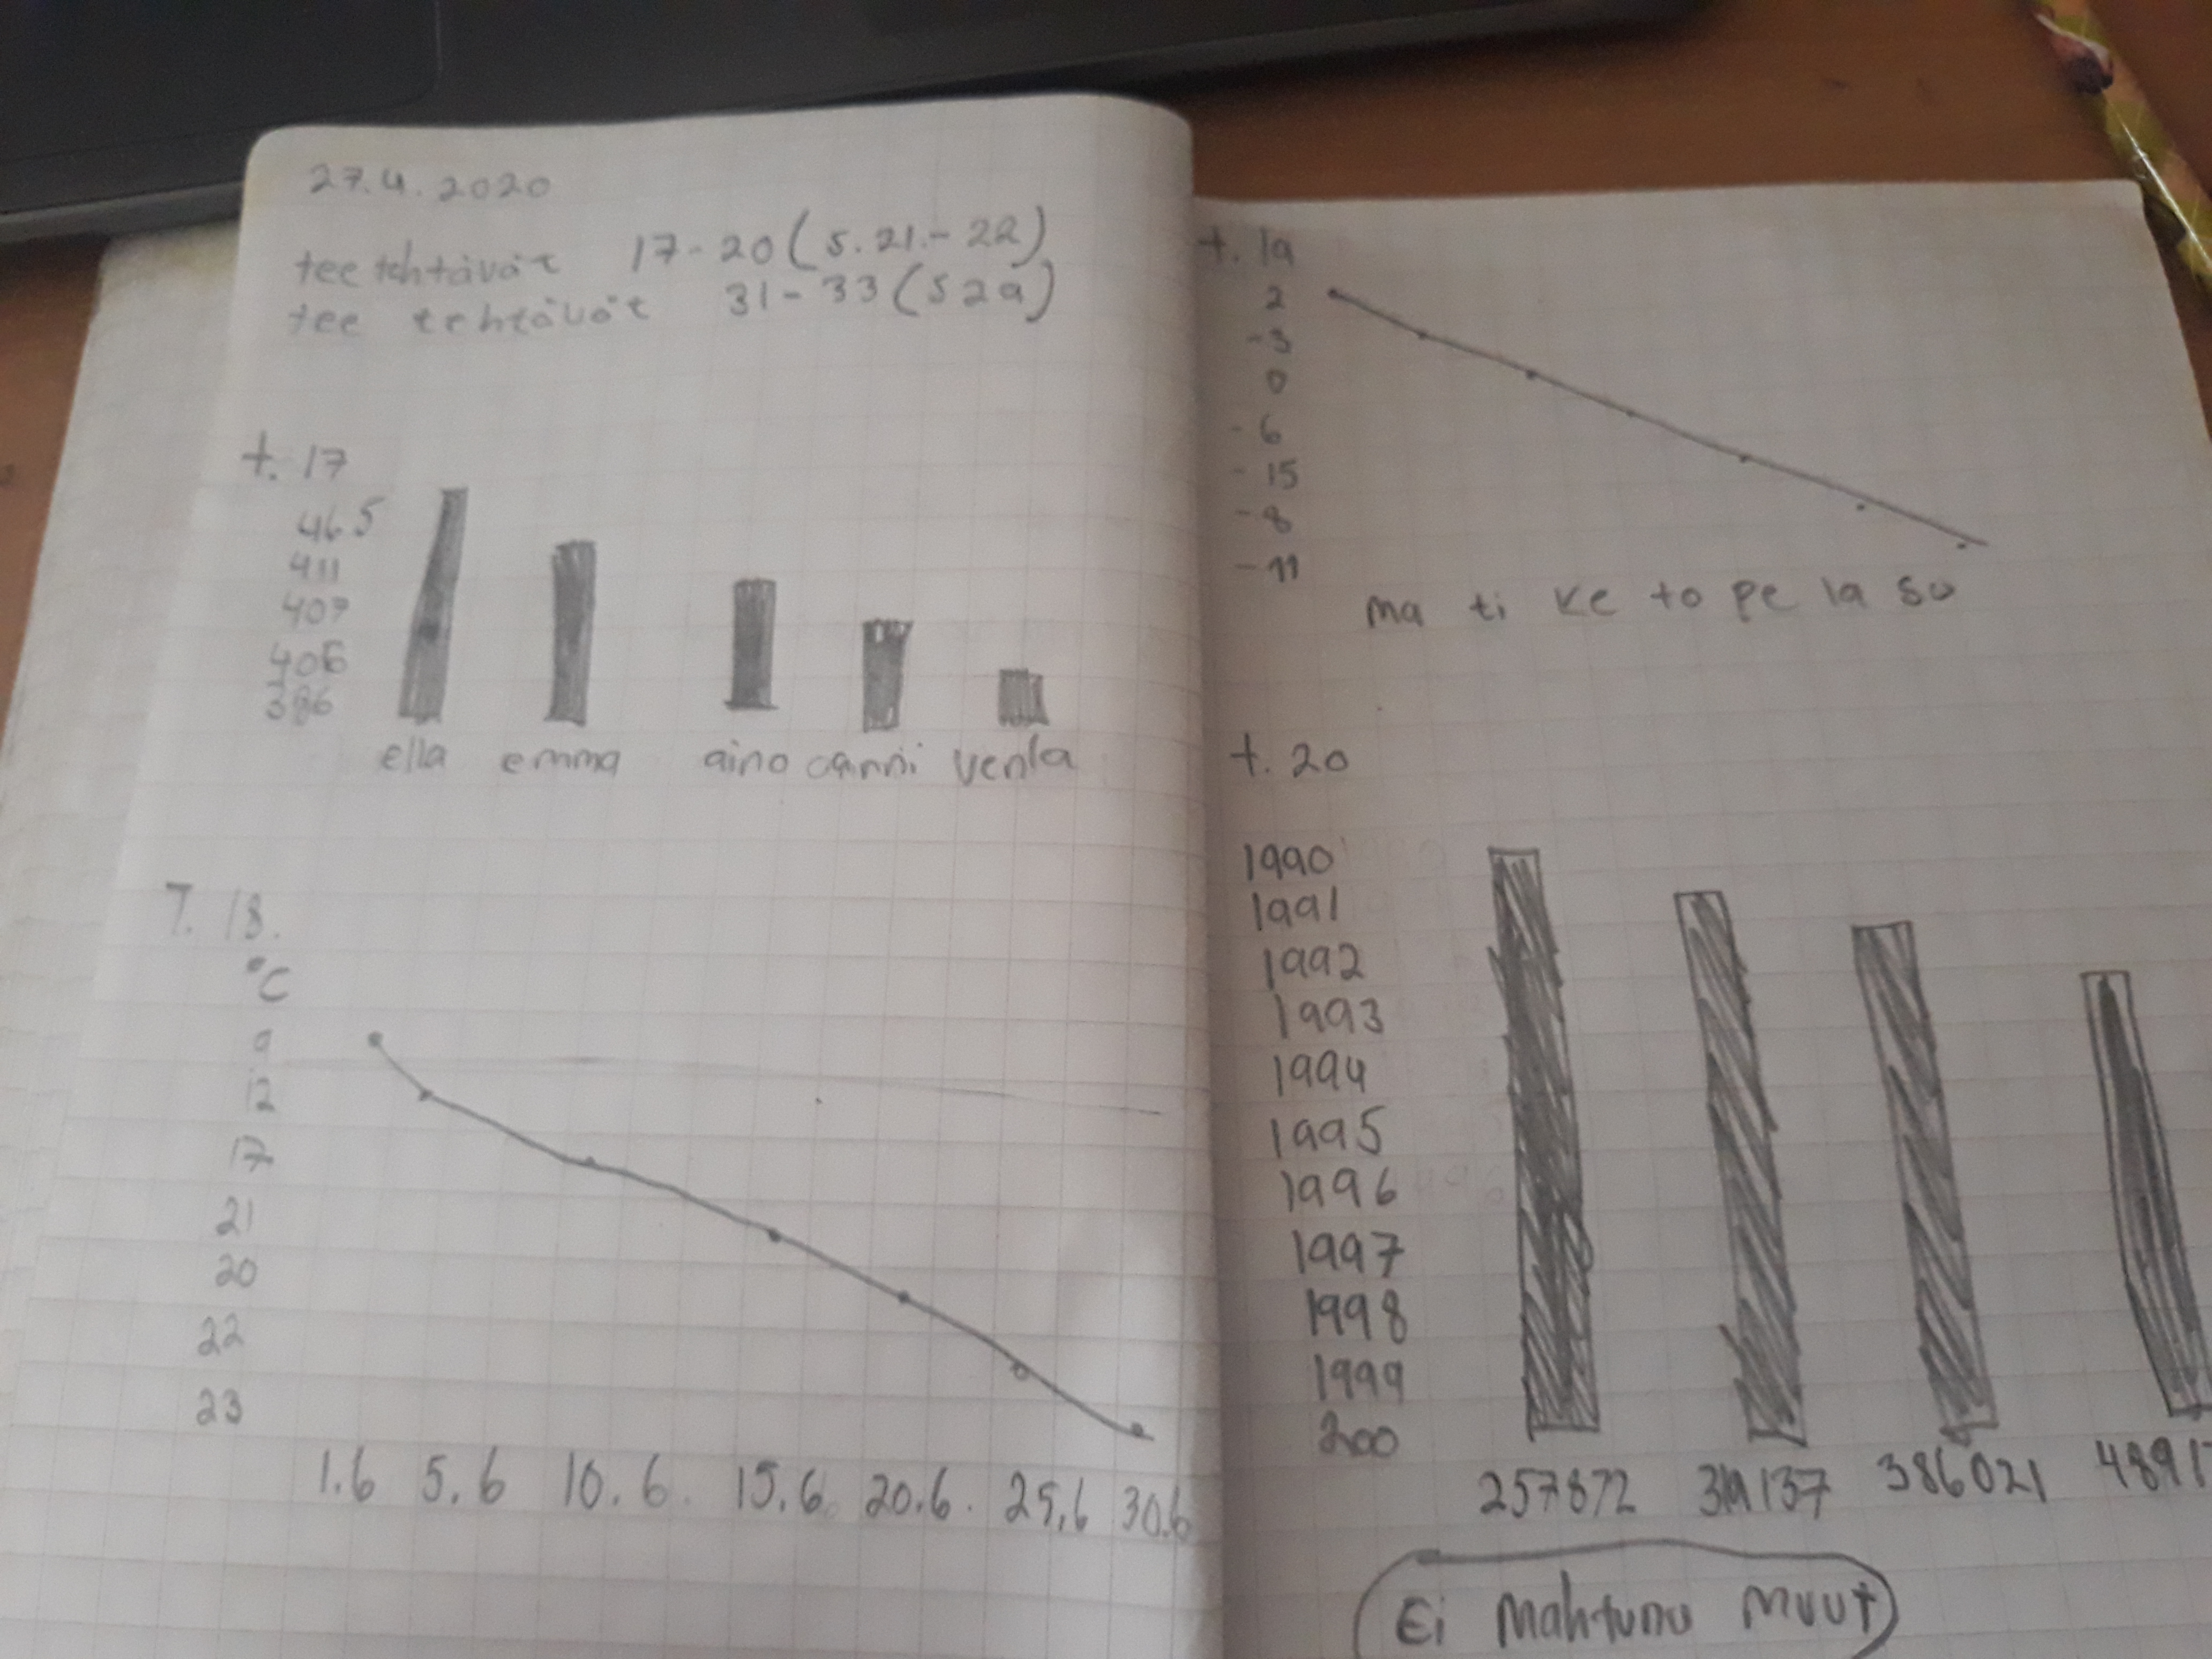 27.4.2020
tee tehtävät 17-20 (s. 21.-22)
tee tehtävät 31-33 (s 29)
t. 17
465
411
407
406
386
ella emma aino vanni venla
T. 18.
°C
9
12
17
21
20
22
23
1.6 5.6 10.6. 15.6. 20.6. 25.6 30.6
t. 19
2
-3
0
-6
-15
-8
-11
ma ti ke to pe la su
t. 20
1990
1991
1992
1993
1994
1995
1996
1997
1998
1999
200
257872 319137 386021 4891
Ei mahtunu muut